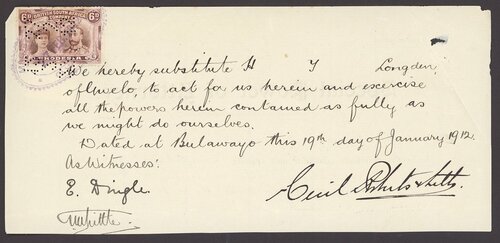 6D BRITISH SOUTH AFRICA 6D
COMPANY
RHODESIA
We hereby substitute H Y Longden,
of Gwelo, to act for us herein and exercise
all the powers herein contained as fully as
we might do ourselves.
Dated at Bulawayo this 19th day of January 1912.
As Witnesses:
E. Dingle.
Cecil